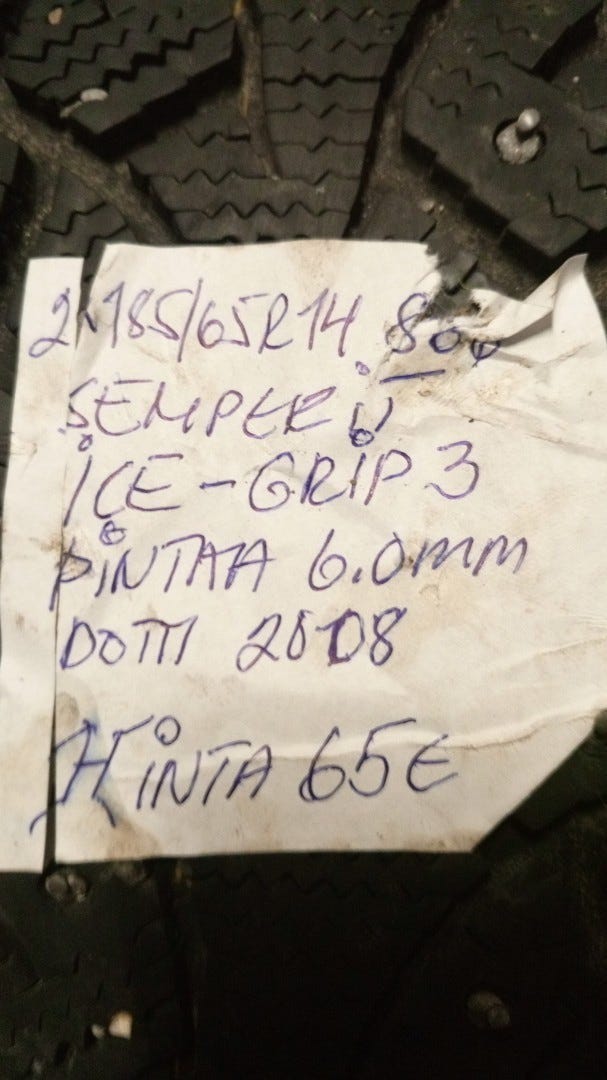 2.185/65R14
SEMPERIT
ICE-GRIP 3
PINTAA 6.0mm
DOTTI
HINTA 65€